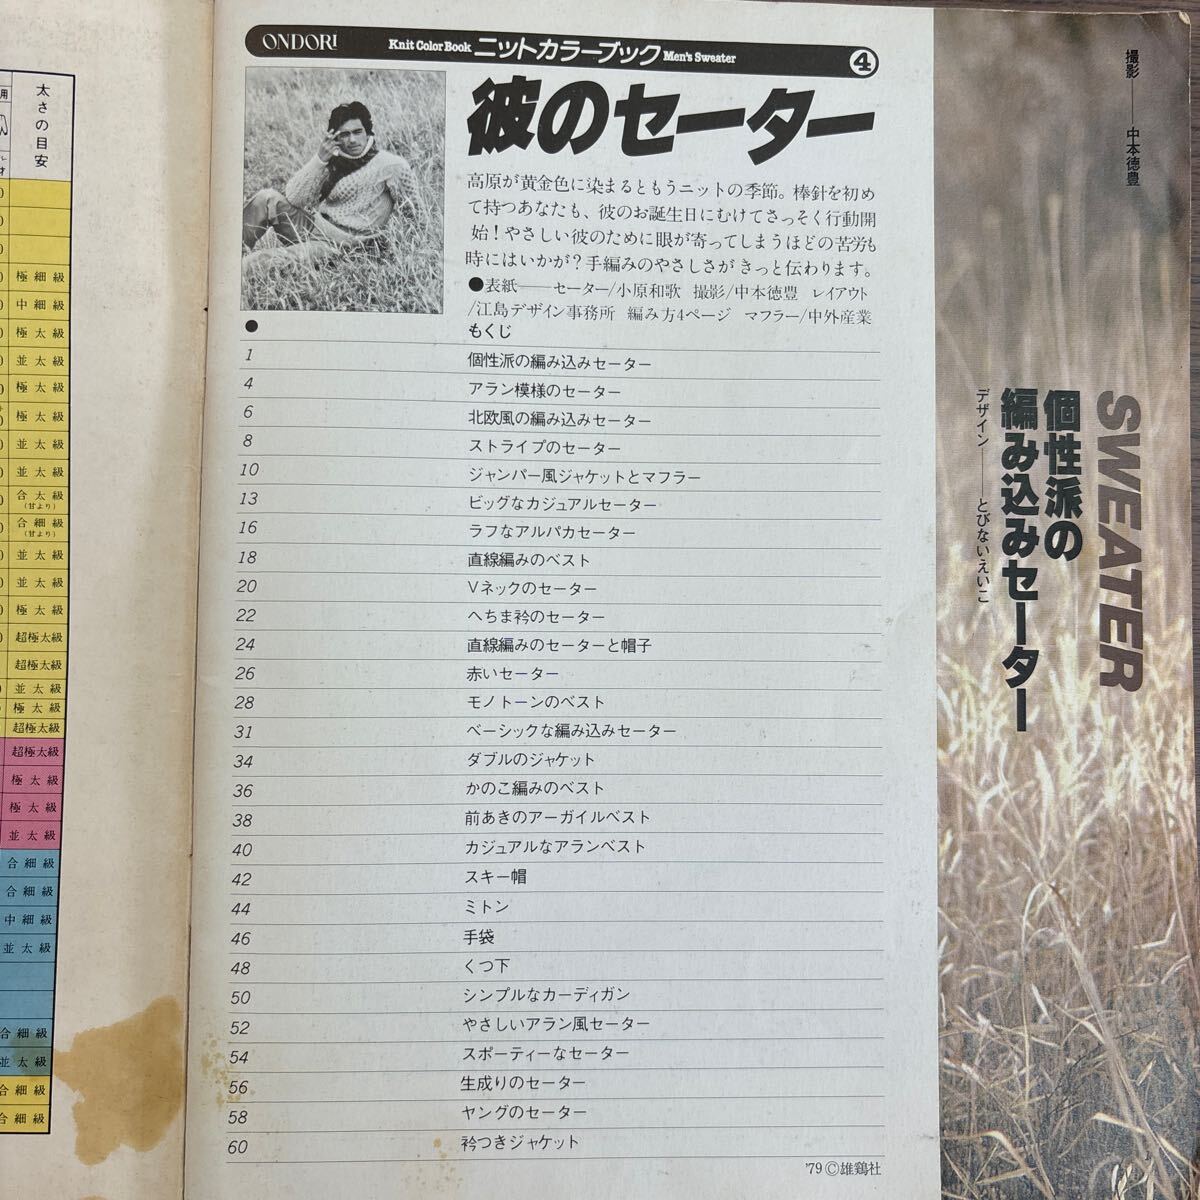 用
太さの目安
極細級
中細級
極太級
並太級
極太級
極太級
並太級
並太級
合太級
(甘より)
合細級
(甘より)
並太級
並太級
極太級
超極太級
超極太級
並太級
極太級
超極太級
超極太級
極太級
極太級
並太級
合細級
合細級
中細級
並太級
合細級
並太級
合細級
合細級
ONDORI Knit Color Book ニットカラーブック Men's Sweater 4
彼のセーター
高原が黄金色に染まるともうニットの季節。棒針を初め
て持つあなたも、彼のお誕生日にむけてさっそく行動開
始！やさしい彼のために眼が寄ってしまうほどの苦労も
時にはいかが？手編みのやさしさがきっと伝わります。
●表紙――セーター/小原和歌 撮影/中本徳豊 レイアウト
/江島デザイン事務所 編み方4ページ マフラー/中外産業
● もくじ
1 個性派の編み込みセーター
4 アラン模様のセーター
6 北欧風の編み込みセーター
8 ストライプのセーター
10 ジャンパー風ジャケットとマフラー
13 ビッグなカジュアルセーター
16 ラフなアルパカセーター
18 直線編みのベスト
20 Vネックのセーター
22 へちま衿のセーター
24 直線編みのセーターと帽子
26 赤いセーター
28 モノトーンのベスト
31 ベーシックな編み込みセーター
34 ダブルのジャケット
36 かのこ編みのベスト
38 前あきのアーガイルベスト
40 カジュアルなアランベスト
42 スキー帽
44 ミトン
46 手袋
48 くつ下
50 シンプルなカーディガン
52 やさしいアラン風セーター
54 スポーティーなセーター
56 生成りのセーター
58 ヤングのセーター
60 衿つきジャケット
'79 ©雄鶏社
撮影――中本徳豊
SWEATER
個性派の
編み込みセーター
デザイン――とびないえいこ